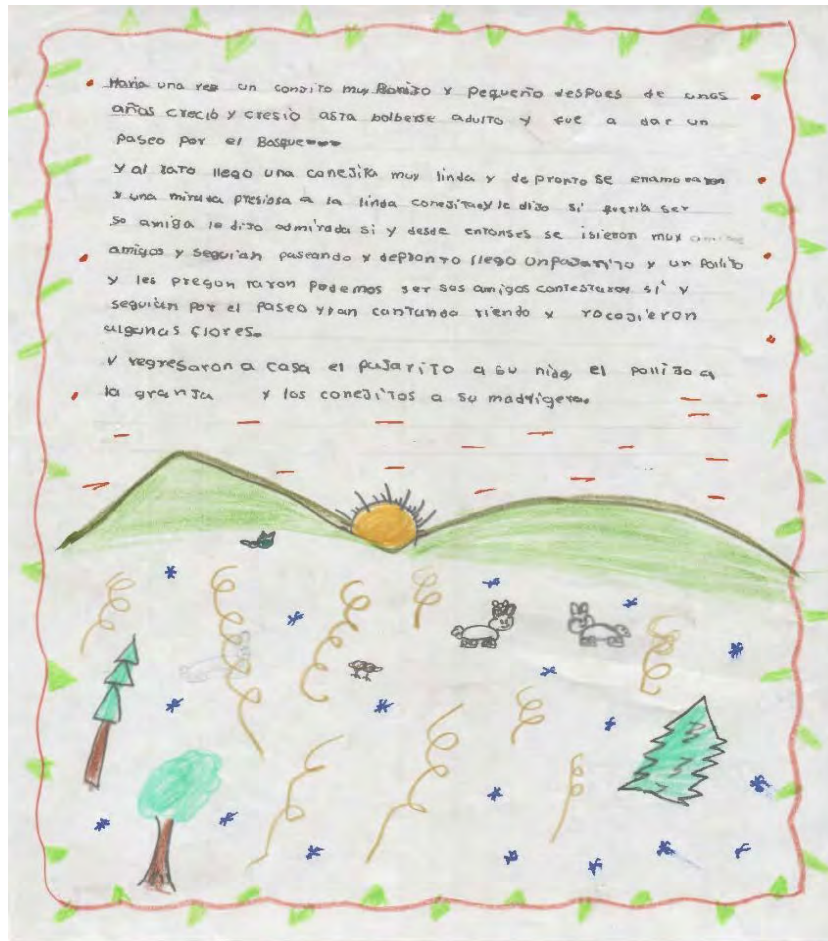 Havia una ves un consito muy Bonito y pequeño despues de unos
años creció y cresió asta bolberse adulto y fue a dar un
paseo por el Bosque....
y al rato llego una conejita muy linda y de pronto se enamoraron
y una mirada presiosa a la linda conejita y le dijo si queria ser
so amiga le dijo admirada si y desde entonses se isieron muy amigos
amigos y seguian paseando y depronto llego un pajarito y un pollito
y les preguntaron podemos ser sus amigos contestaron si y
seguian por el paseo y ian cantando riendo y rocojieron
algunas flores.
y regresaron a casa el pajarito a su nido, el pollito a
la granja y los conejitos a su madrigera.